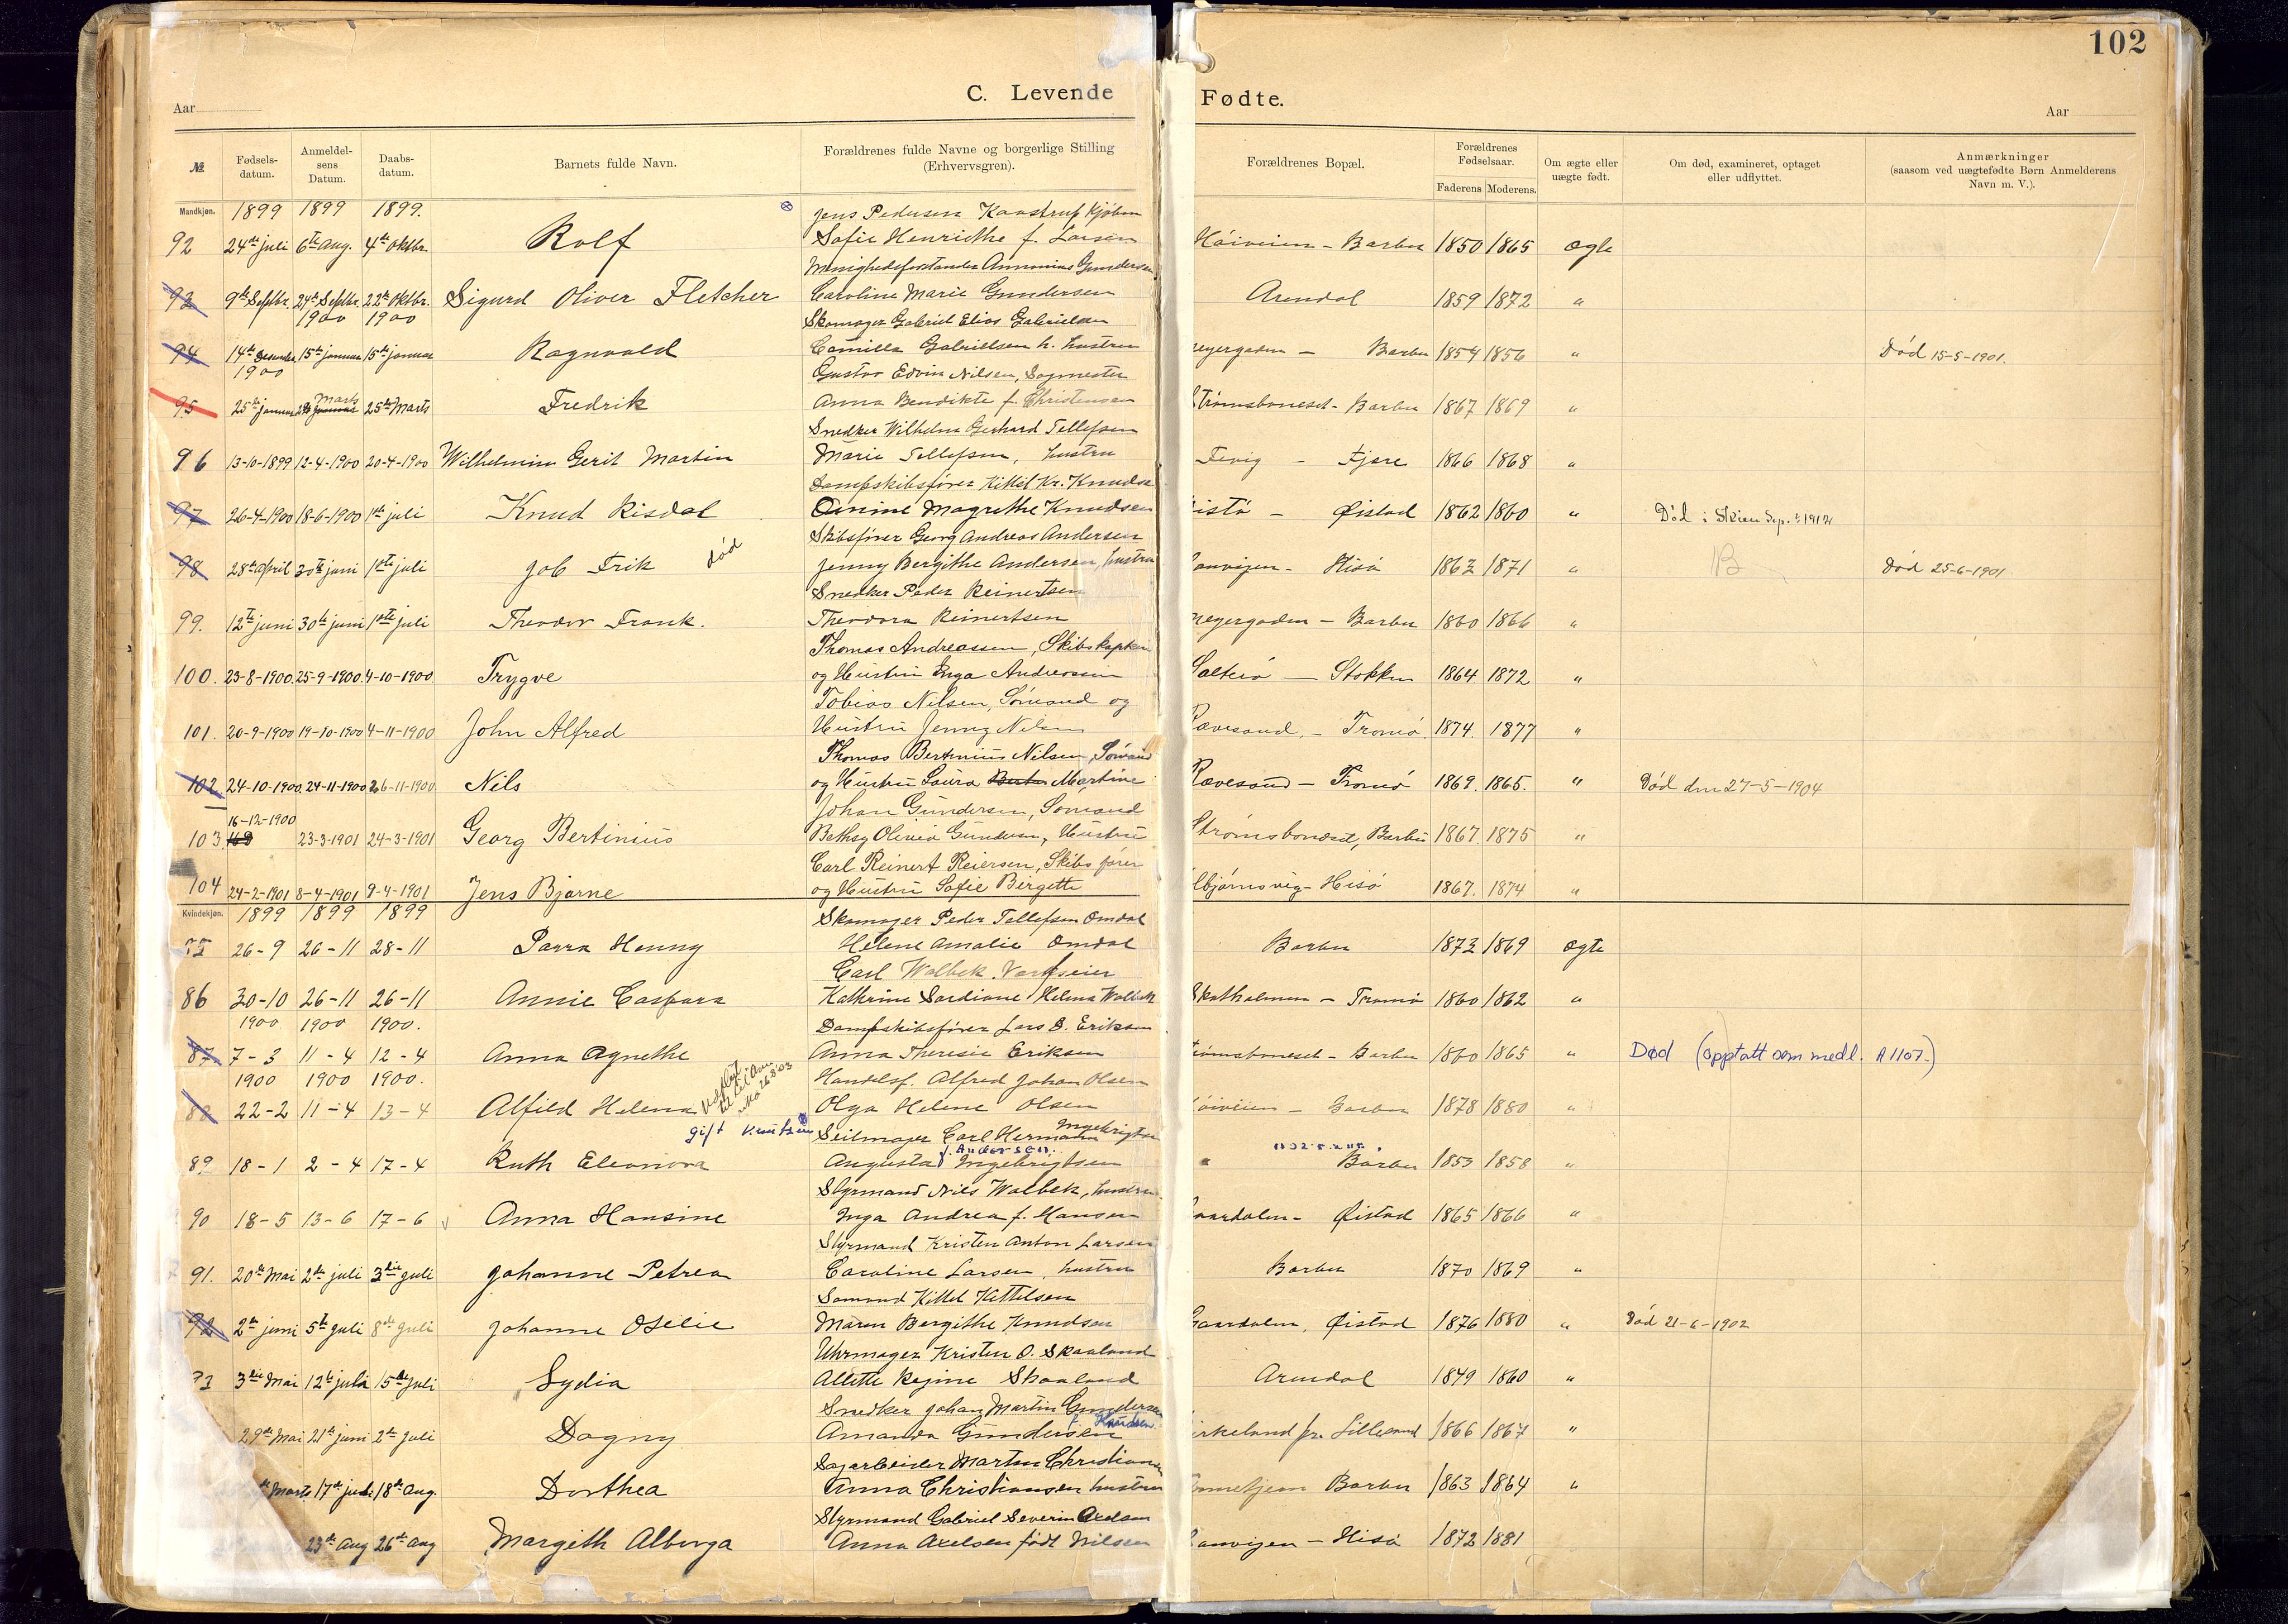 102
C. Levende Fødte.
Aar
Aar
№
Fødsels-datum.
Anmeldel-sens Datum.
Daabs-datum.
Barnets fulde Navn.
Forældrenes fulde Navne og borgerlige Stilling (Erhvervsgren).
Forældrenes Bopæl.
Forældrenes Fødselsaar.
Faderens
Moderens.
Om ægte eller uægte født.
Om død, examineret, optaget eller udflyttet.
Anmærkninger (saasom ved uægtefødte Børn Anmelderens Navn m. V.).
Mandkjøn. 1899 1899 1899. Jens Pedersen Kaastrup Kjøbm
92 24de juli 6te Aug. 4de Oktbr. Rolf Sofie Henriethe f. Larsen Høiveien - Barbu 1850 1865 Ægte
Menighedsforstander Ammnius Gundersen
93 9de Septbr. 24de Septbr. 22de Oktbr. Sigurd Oliver Fletcher Caroline Marie Gundersen Arendal 1859 1872 "
1900 1900 Skomager Gabriel Elias Gabrielsen
94 14de Desember 15de januar 15de januar Ragnvald Camilla Gabrielsen h. hustru Barbu 1854 1856 " Død 15-5-1901.
1900 Gustav Edvin Nilsen, Sagmester
95 25de januar Marts 25de Marts Fredrik Anna Bendikte f. Christensen Strømsboneset - Barbu 1867 1869 "
Snedker Wilhelm Gerhard Tellefsen
96 13-10-1899 12-4-1900 20-4-1900 Wilhelmin Gerit Martin Marie Tellefsen, hustru Fevig - Fjære 1866 1868 "
Dampskibsfører Kittel Kr. Knudsen
97 26-4-1900 18-6-1900 1ste juli Knud Risdal Amine Magrethe Knudsen - Øistad 1862 1860 " Død i Skien Sep. 1912
Skibsfører Georg Andreas Andersen
98 28de April 30te juni 1ste juli Job Erik død Jenny Bergithe Andersen, hustru - Hisø 1862 1871 " B Død 25-6-1901
Snedker Peder Reinertsen
99. 12te juni 30te juni 1ste juli Theodor Frank. Theodora Reinertsen - Barbu 1860 1866 "
Thomas Andreassen, Skibskaptein
100. 23-8-1900. 25-9-1900. 4-10-1900 Trygve og Hustru Inga Andreassen Salterø - Stokken 1864 1872 "
Tobias Nilsen, Sømand og
101. 20-9-1900 19-10-1900 4-11-1900 John Alfred Hustru Jenny Nilsen Rævesand, - Tromø. 1874. 1877 "
Thomas Bertinius Nilsen, Sømand
102 24-10-1900. 24-11-1900 26-11-1900. Nils og Hustru Laura Martine Rævesand - Tromø 1869. 1865. " Død den 27-5-1904
16-12-1900 Johan Gundersen, Sømand
103 23-3-1901 24-3-1901 Georg Bertinius Bethsy Olivia Gundersen, Hustru Strømsboneset, Barbu 1867 1875 "
Carl Reinert Reiersen, Skibsfører
104 24-2-1901 8-4-1901 9-4-1901 Jens Bjarne og Hustru Sofie Birgette - Hisø 1867. 1874 "
Kvindekjøn. 1899 1899 1899 Skomager Peder Tellefsen Omdal
26-9 26-11 28-11 Parra Henny Helene Amalie Omdal Barbu 1873 1869 Ægte
Carl Walbek. Verftseier
86 30-10 26-11 26-11 Annie Caspara Kathrine Helena Walbek Skatholmen - Tromø 1860 1862 "
1900 1900 1900. Dampskibsfører Lars B. Eriksen
87 7-3 11-4 12-4 Anna Agnethe Anna Theresie Eriksen Strømsboneset - Barbu 1860 1865 " Død (opptatt som medl. A 1107.)
1900 1900 1900. Handelsf. Alfred Johan Olsen
88 22-2 11-4 13-4 Alfild Helena Olga Helene Olsen Høiveien - Barbu 1878 1880 "
gift Knutsen Seilmager Carl Hermann Ingebrigtsen
89 18-1 2-4 17-4 Ruth Eleonora Augusta f. Andersen. Ingebrigtsen " Barbu 1853 1858 "
Styrmand Nils Walbek, hustru
90 18-5 13-6 17-6 Anna Hansine Inga Andrea f. Hansen - Øistad 1865 1866 "
Styrmand Kristen Anton Larsen
91. 20de Mai 2de juli 3die juli Johanne Petrea Caroline Larsen, hustru Barbu 1870 1869 "
Sømand Kittel Kittelsen
92 2de juni 5te juli 8de juli Johanne Oselie Maren Bergithe Knudsen Gaardalen, Øistad 1876 1880 " Død 21-6-1902
Uhrmager Kristen O. Skaaland
93 3die Mai 12te juli 15de juli Lydia Allette Regine Skaaland Arendal 1849 1860 "
Snedker Johan Martin Gundersen
29de Mai 21de juni 2de juli Dagny Amanda Gundersen f. Knudsen Birkeland pr. Lillesand 1866 1867 "
Sagarbeider Marten Christiansen
Marts 17de juli 18de Aug. Dorthea Anna Christiansen hustru Barbu 1863 1864 "
Styrmand Gabriel Severin Axelsen
23de Aug 26de Aug Margith Alberga Anna Axelsen født Nilsen - Hisø 1872 1881